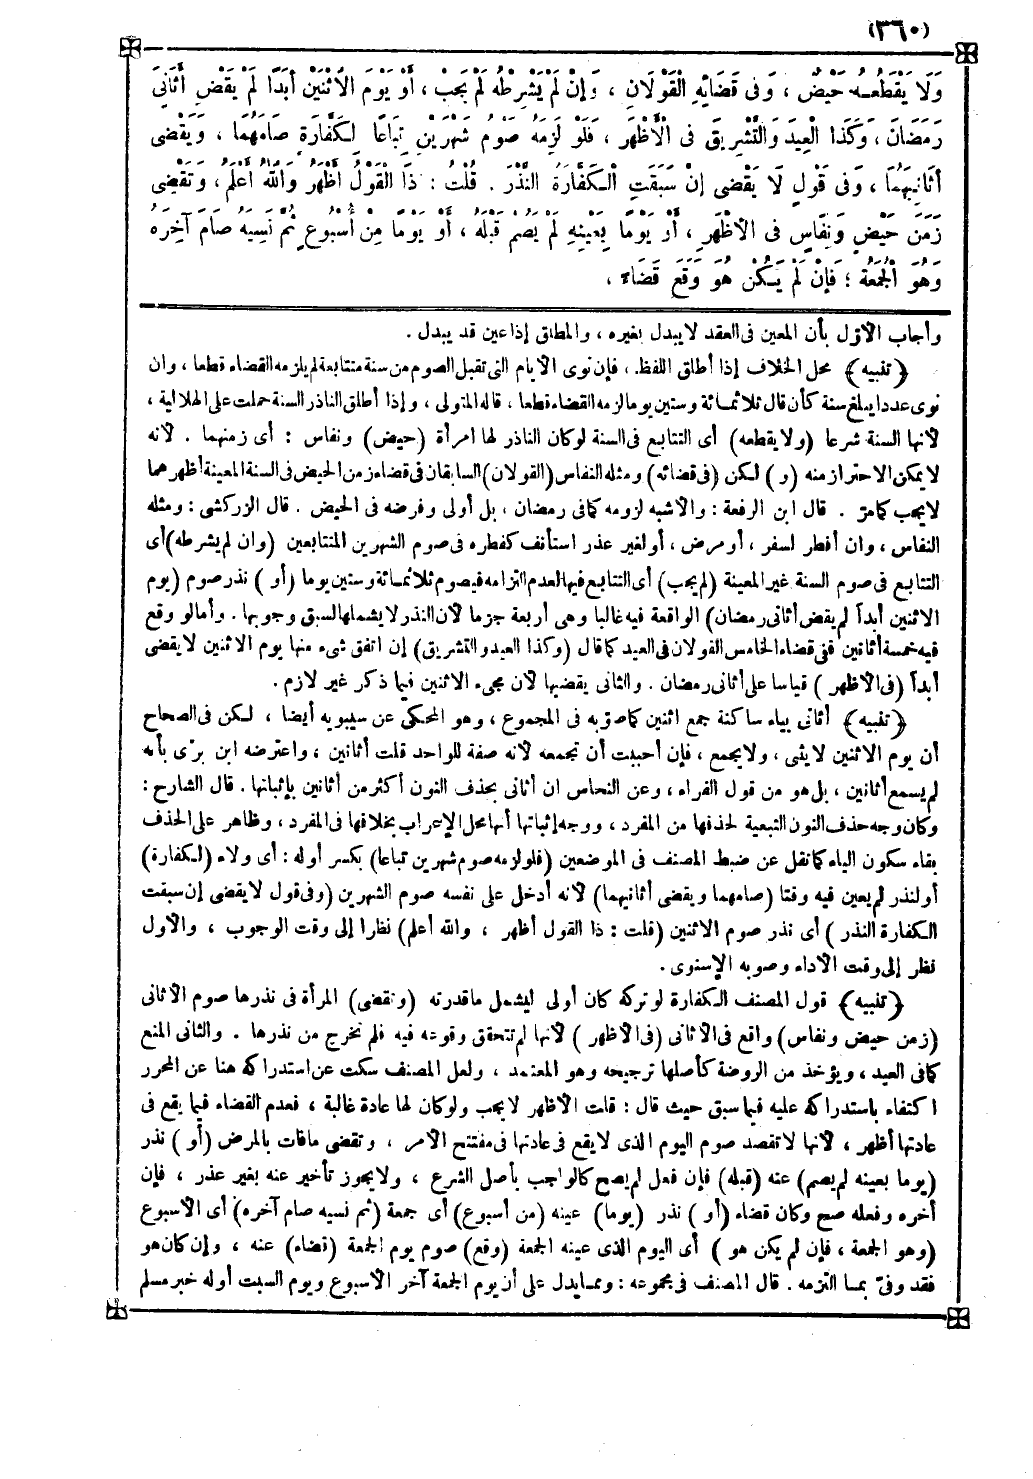 (٣٦٠)
وَلَا يَقْطَعُهُ حَيْضٌ ، وَفِى قَضَائِهِ الْقَوْلَانِ ، وَإِنْ لَمْ يَشْرِطْهُ لَمْ يَجِبْ ، أَوْ يَوْمَ الِاثْنَيْنِ أَبَدًا لَمْ يَقْضِ أَثَانِىَ
رَمَضَانَ ، وَكَذَا الْعِيدَ وَالتَّشْرِيقَ فِى الْأَظْهَرِ ، فَلَوْ لَزِمَهُ صَوْمُ شَهْرَيْنِ تِبَاعًا لِكَفَّارَةٍ صَامَهُمَا ، وَيَقْضِى
أَثَانِيَهُمَا ، وَفِى قَوْلٍ لَا يَقْضِى إِنْ سَبَقَتِ الْكَفَّارَةُ النَّذْرَ . قُلْتُ : ذَا الْقَوْلُ أَظْهَرُ وَاللّٰهُ أَعْلَمُ ، وَتَقْضِى
زَمَنَ حَيْضٍ وَنِفَاسٍ فِى الْأَظْهَرِ ، أَوْ يَوْمًا بِعَيْنِهِ لَمْ يَصُمْ قَبْلَهُ ، أَوْ يَوْمًا مِنْ أُسْبُوعٍ ثُمَّ نَسِيَهُ صَامَ آخِرَهُ
وَهُوَ الْجُمُعَةُ ؛ فَإِنْ لَمْ يَكُنْ هُوَ وَقَعَ قَضَاءً ،
وأجاب الأوّل بأن المعين فى العقد لا يبدل بغيره ، والمطلق إذا عين قد يبدل .
﴿ تنبيه ﴾ محل الخلاف إذا أطلق اللفظ ، فإن نوى الأيام التى تقبل الصوم من سنة متتابعة لم يلزمه القضاء قطعا ، وان
نوى عددا يبلغ سنة كأن قال ثلاثمائة وستين يوما لزمه القضاء قطعا ، قاله المتولى ، وإذا أطلق الناذر السنة حملت على الهلالية ،
لأنها السنة شرعا (ولا يقطعه) أى التتابع فى السنة لو كان الناذر لها امرأة (حيض) ونفاس : أى زمنهما . لأنه
لا يمكن الاحتراز منه (و) لكن (فى قضائه) ومثله النفاس (القولان) السابقان فى قضاء زمن الحيض فى السنة المعينة أظهرهما
لا يجب كما مرّ . قال ابن الرفعة : والأشبه لزومه كما فى رمضان ، بل أولى وفرضه فى الحيض . قال الزركشى : ومثله
النفاس ، وان أفطر لسفر ، أو مرض ، أو لغير عذر استأنف كفطره فى صوم الشهرين المتتابعين (وان لم يشرطه) أى
التتابع فى صوم السنة غير المعينة (لم يجب) أى التتابع فيها لعدم التزامه فيصوم ثلاثمائة وستين يوما (أو) نذر صوم (يوم
الاثنين أبدا لم يقض أثانى رمضان) الواقعة فيه غالبا وهى أربعة جزما لأن النذر لا يشملها لسبق وجوبها . وأما لو وقع
فيه خمسة أثانين ففى قضاء الخامس القولان فى العيد كما قال (وكذا العيد والتشريق) إن اتفق شىء منها يوم الاثنين لا يقضى
أبدا (فى الأظهر) قياسا على أثانى رمضان . والثانى يقضيها لأن مجىء الاثنين فيما ذكر غير لازم .
﴿ تنبيه ﴾ أثانى بياء ساكنة جمع اثنين كما صوّبه فى المجموع ، وهو المحكى عن سيبويه أيضا ، لكن فى الصحاح
أن يوم الاثنين لا يثنى ، ولا يجمع ، فإن أحببت أن تجمعه لأنه صفة للواحد قلت أثانين ، واعترضه ابن برّى بأنه
لم يسمع أثانين ، بل هو من قول الفراء ، وعن النحاس ان أثانى بحذف النون أكثر من أثانين بإثباتها . قال الشارح :
وكان وجه حذف النون التبعية لحذفها من المفرد ، ووجه إثباتها أنها محل الإعراب بخلافها فى المفرد ، وظاهر على الحذف
بقاء سكون الياء كما نقل عن ضبط المصنف فى الموضعين (فلو لزمه صوم شهرين تباعا) بكسر أوله : أى ولاء (لكفارة)
أو لنذر لم يعين فيه وقتا (صامهما ويقضى أثانيهما) لأنه أدخل على نفسه صوم الشهرين (وفى قول لا يقضى إن سبقت
الكفارة النذر) أى نذر صوم الاثنين (قلت : ذا القول أظهر ، والله أعلم) نظرا إلى وقت الوجوب ، والأول
نظر إلى وقت الأداء وصوبه الإسنوى .
﴿ تنبيه ﴾ قول المصنف الكفارة لو تركه كان أولى ليشمل ما قدرته (وتقضى) المرأة فى نذرها صوم الأثانى
(زمن حيض ونفاس) واقع فى الأثانى (فى الأظهر) لأنها لم تتحقق وقوعه فيه فلم تخرج من نذرها . والثانى المنع
كما فى العيد ، ويؤخذ من الروضة كأصلها ترجيحه وهو المعتمد ، ولعل المصنف سكت عن استدراكه هنا عن المحرر
اكتفاء باستدراكه عليه فيما سبق حيث قال : قلت الأظهر لا يجب ولو كان لها عادة غالبة ، فعدم القضاء فيما يقع فى
عادتها أظهر ، لأنها لا تقصد صوم اليوم الذى لا يقع فى عادتها فى مفتتح الأمر ، وتقضى ما فات بالمرض (أو) نذر
(يوما بعينه لم يصم) عنه (قبله) فإن فعل لم يصح كالواجب بأصل الشرع ، ولا يجوز تأخير عنه بغير عذر ، فإن
أخره وفعله صح وكان قضاء (أو) نذر (يوما) عينه (من أسبوع) أى جمعة (ثم نسيه صام آخره) أى الأسبوع
(وهو الجمعة ، فإن لم يكن هو) أى اليوم الذى عينه الجمعة (وقع) صوم يوم الجمعة (قضاء) عنه ، وإن كان هو
فقد وفىّ بما التزمه . قال المصنف فى مجموعه : ومما يدل على أن يوم الجمعة آخر الأسبوع ويوم السبت أوله خبر مسلم